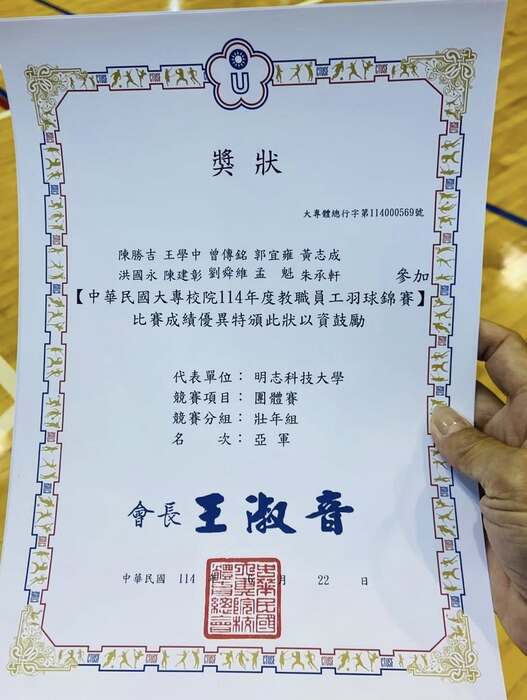 U
獎狀
大專體總行字第114000569號
陳勝吉 王學中 曾傳銘 郭宜雍 黃志成
洪國永 陳建彰 劉舜維 孟 魁 朱承軒 參加
【中華民國大專校院114年度教職員工羽球錦賽】
比賽成績優異特頒此狀以資鼓勵
代表單位：明志科技大學
競賽項目：團體賽
競賽分組：壯年組
名 次：亞軍
會長 王淑音
中華民國 114 月 22 日
中華民國大專院校體育總會